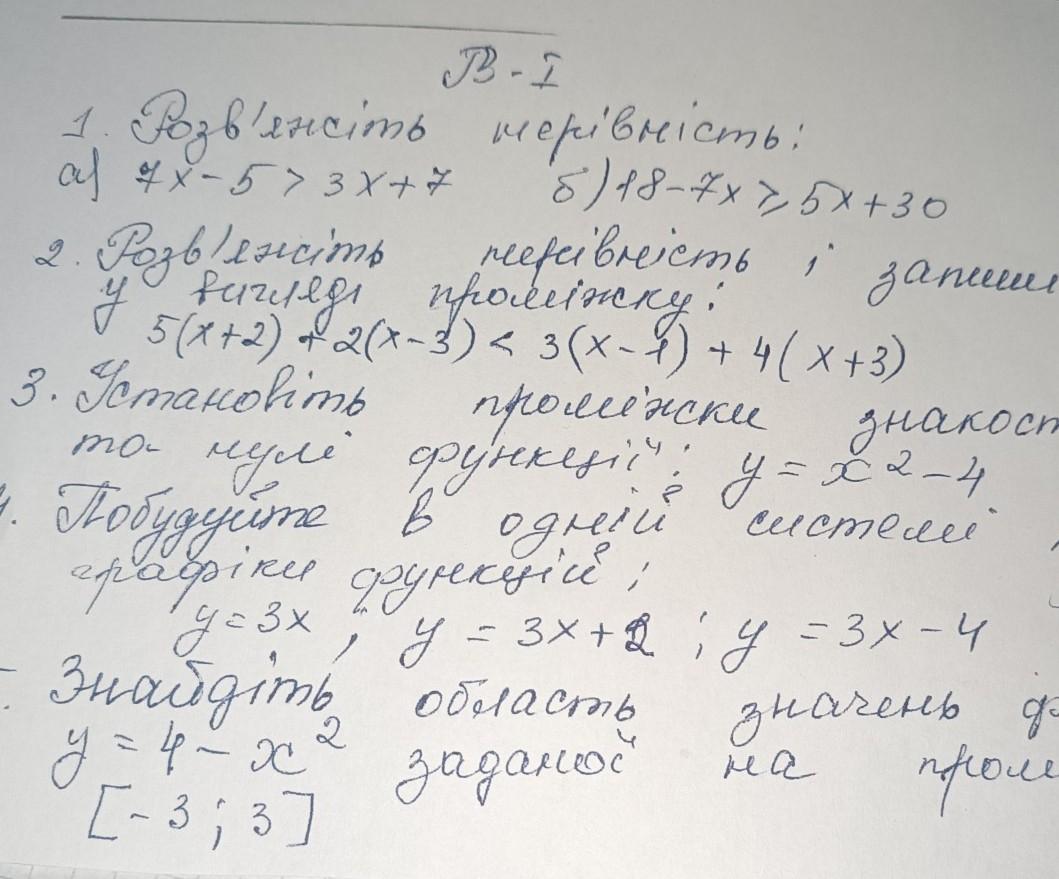 В - І
1. Розв'яжіть нерівність:
а) 7x - 5 > 3x + 7 б) 18 - 7x ≥ 5x + 30
2. Розв'яжіть нерівність і запиши
у вигляді проміжку:
5(x+2) + 2(x-3) < 3(x-1) + 4(x+3)
3. Установіть проміжки знакост
та нулі функції: y = x² - 4
4. Побудуйте в одній системі
графіки функцій:
y = 3x ; y = 3x + 2 ; y = 3x - 4
Знайдіть область значень ф
y = 4 - x² заданої на пром
[-3 ; 3]